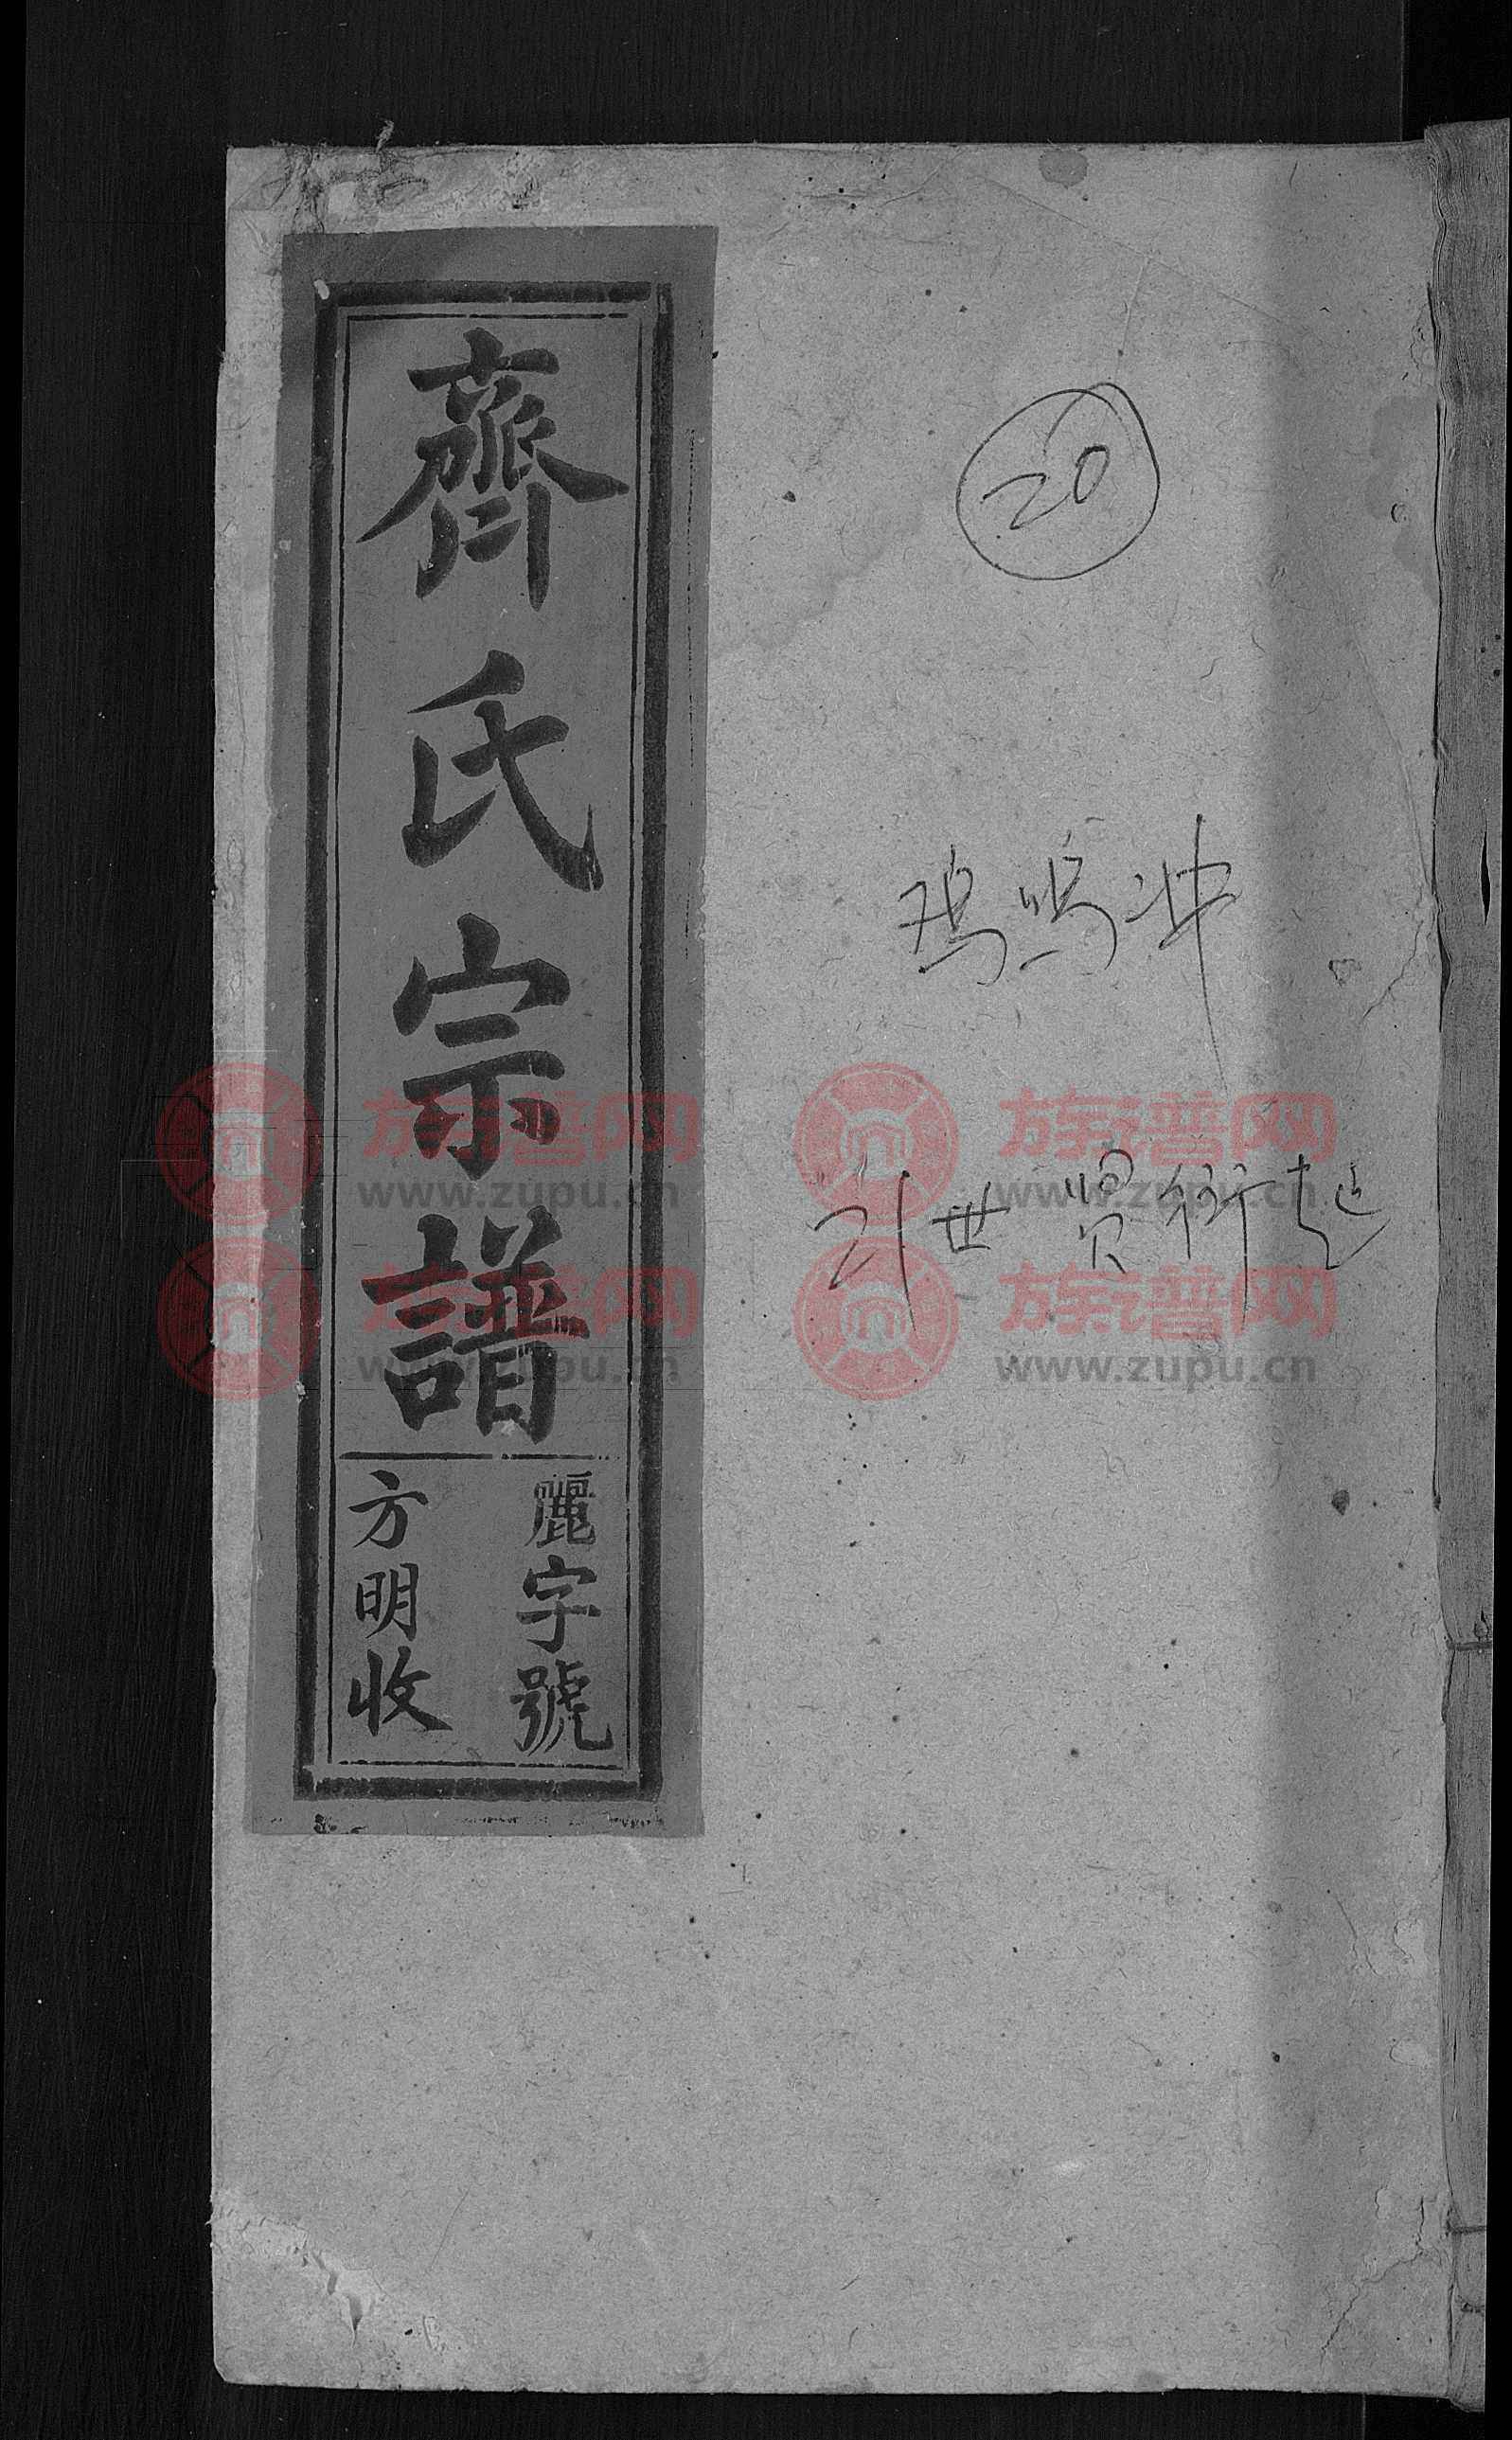 齊氏宗譜
麗字號
方明收
20
21世賢衍起
族谱网
www.zupu.cn
族谱网
www.zupu.cn
族谱网
www.zupu.cn
族谱网
www.zupu.cn